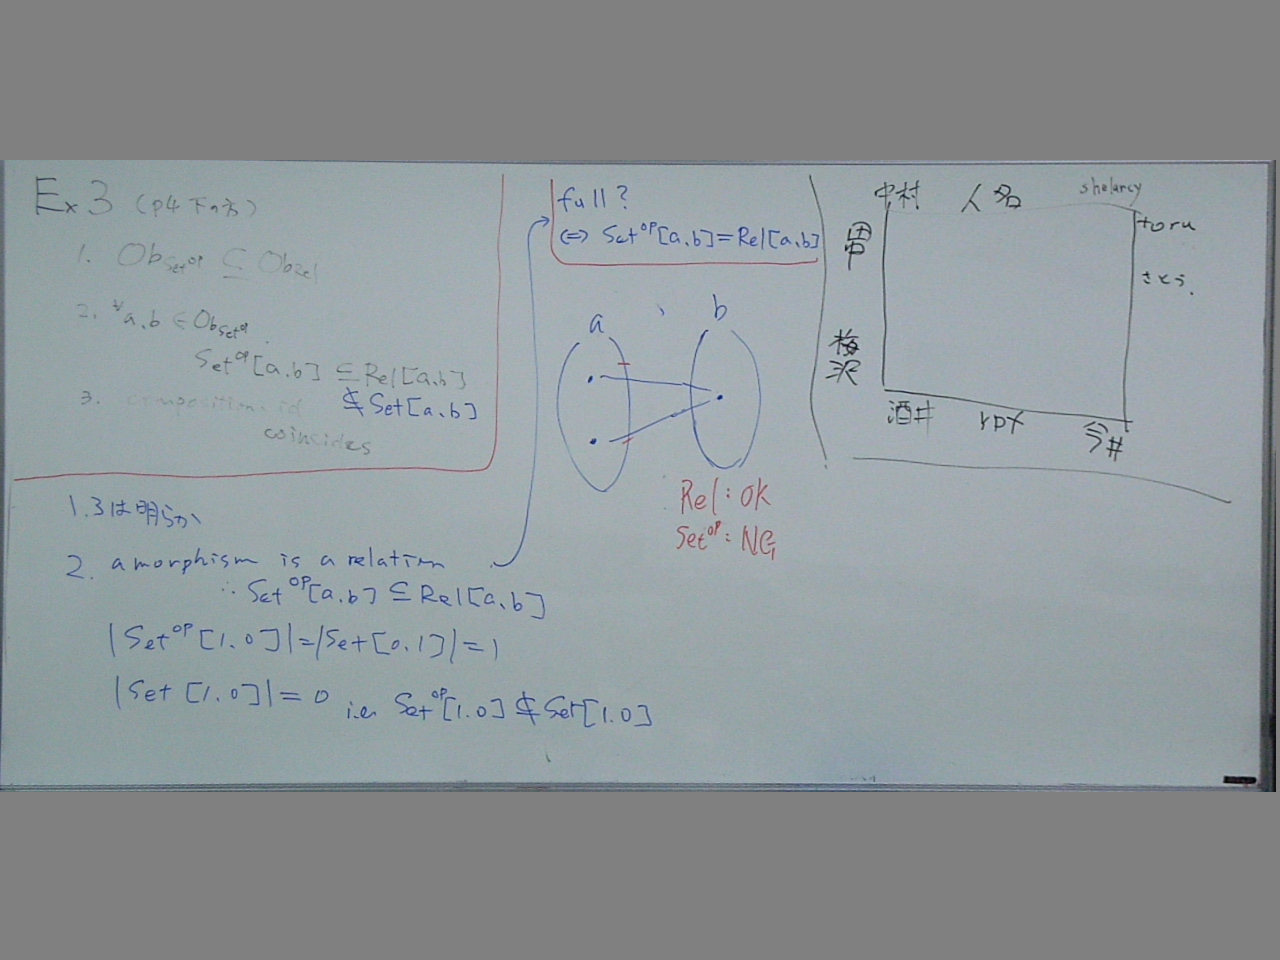 Ex 3 (p4 下の方)
1. Ob_Set^op ⊆ Ob_Rel
2. ∀a.b ∈ Ob_Set^op
Set^op[a.b] ⊆ Rel[a.b]
⊈ Set[a.b]
3. composition. id
coincides
1.3は明らか
2. a morphism is a relation
∴ Set^op[a.b] ⊆ Rel[a.b]
|Set^op[1.0]|=|Set[0.1]|=1
|Set[1.0]|=0 i.e. Set^op[1.0] ⊈ Set[1.0]
full?
⇔ Set^op[a.b]=Rel[a.b]
a b
Rel: OK
Set^op: NG
中村 人名 shelarcy
田中
toru
さとう.
梅沢
酒井 rpf 今井